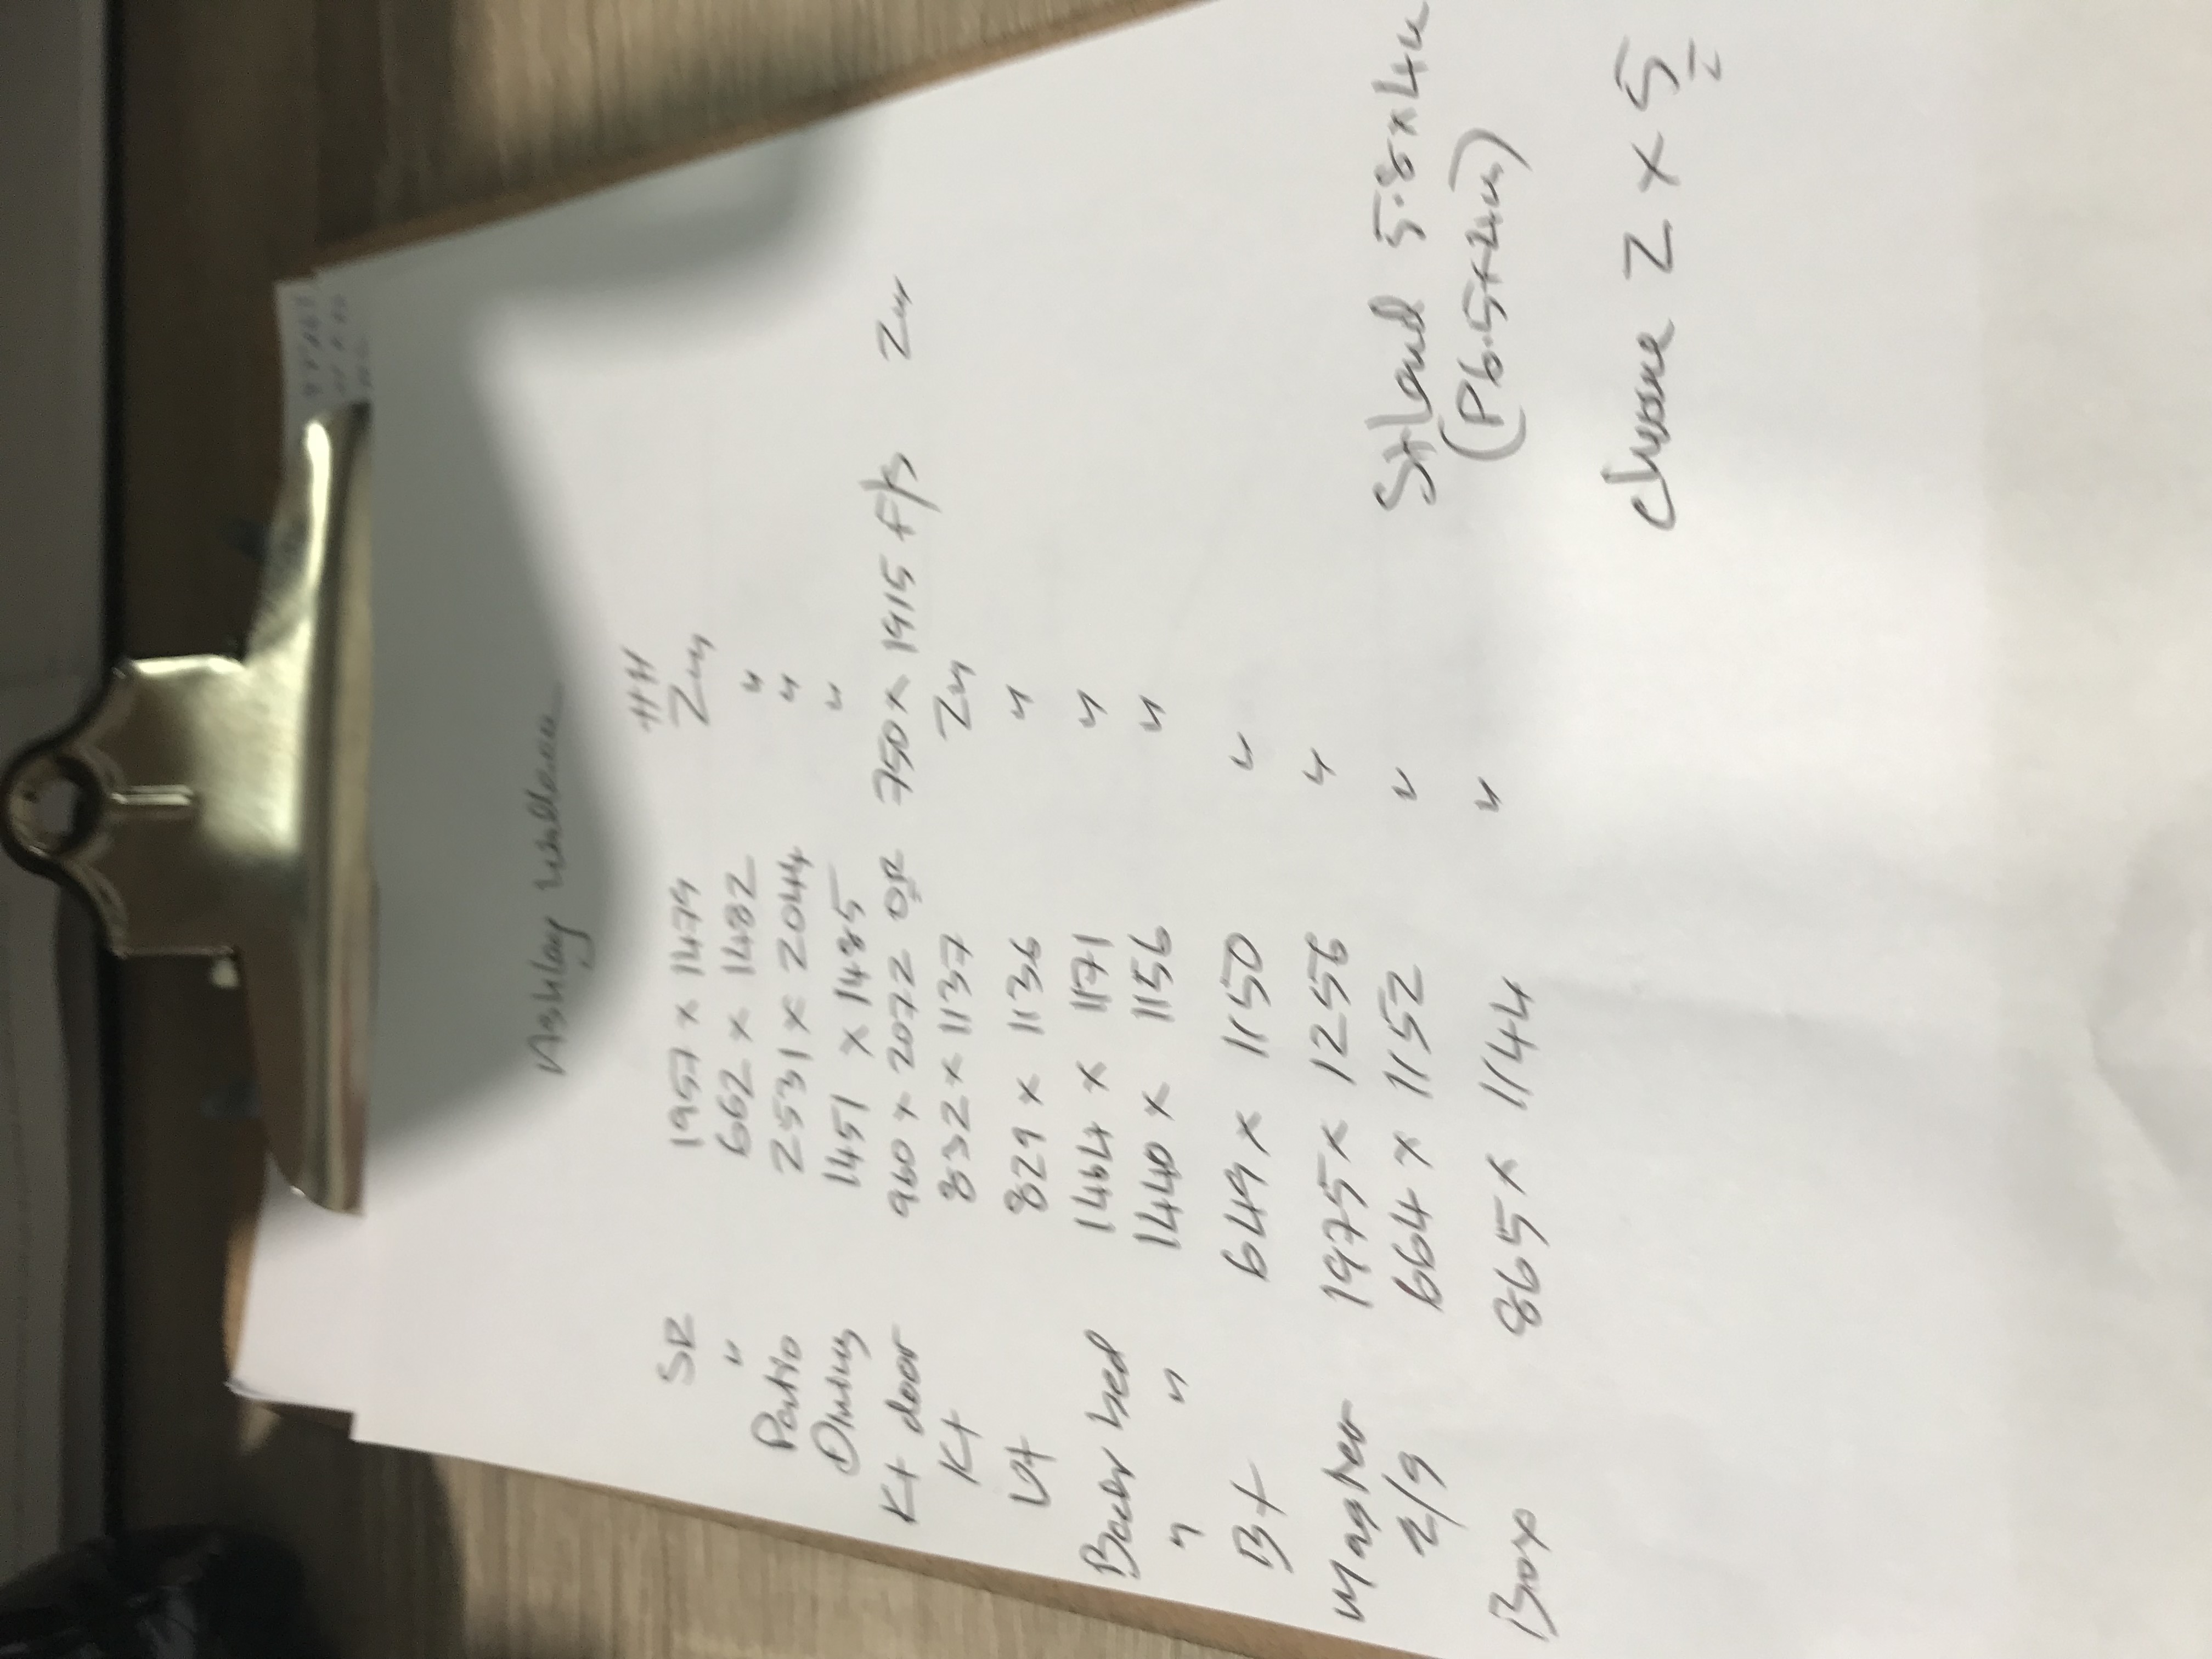 Ashley
HH
SR 1957 x 1479 2m
" 662 x 1482 "
Patio 2531 x 2044 "
Dining 1451 x 1485 "
Kt door 960 x 2072 OR 750 x 1915 f/s 2m
Kt 832 x 1137 2m
Ut 829 x 1136 "
Back bed 1464 x 1171 "
" " 1440 x 1156 "
Bt 649 x 1150 "
Master 1975 x 1256 "
2/9 664 x 1152 "
Box 865 x 1144 "
5.8 x 4m
choose 2 x 5